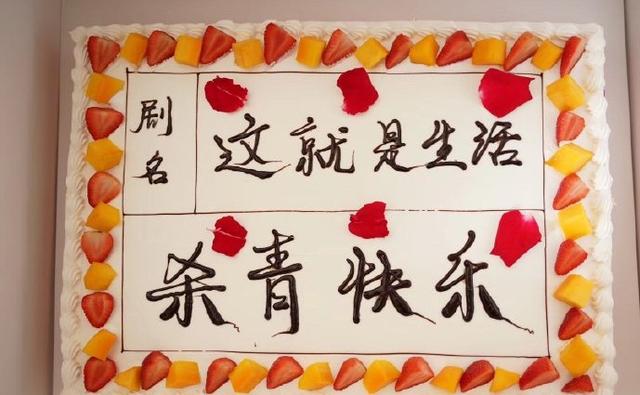 剧名
这就是生活
杀青快乐